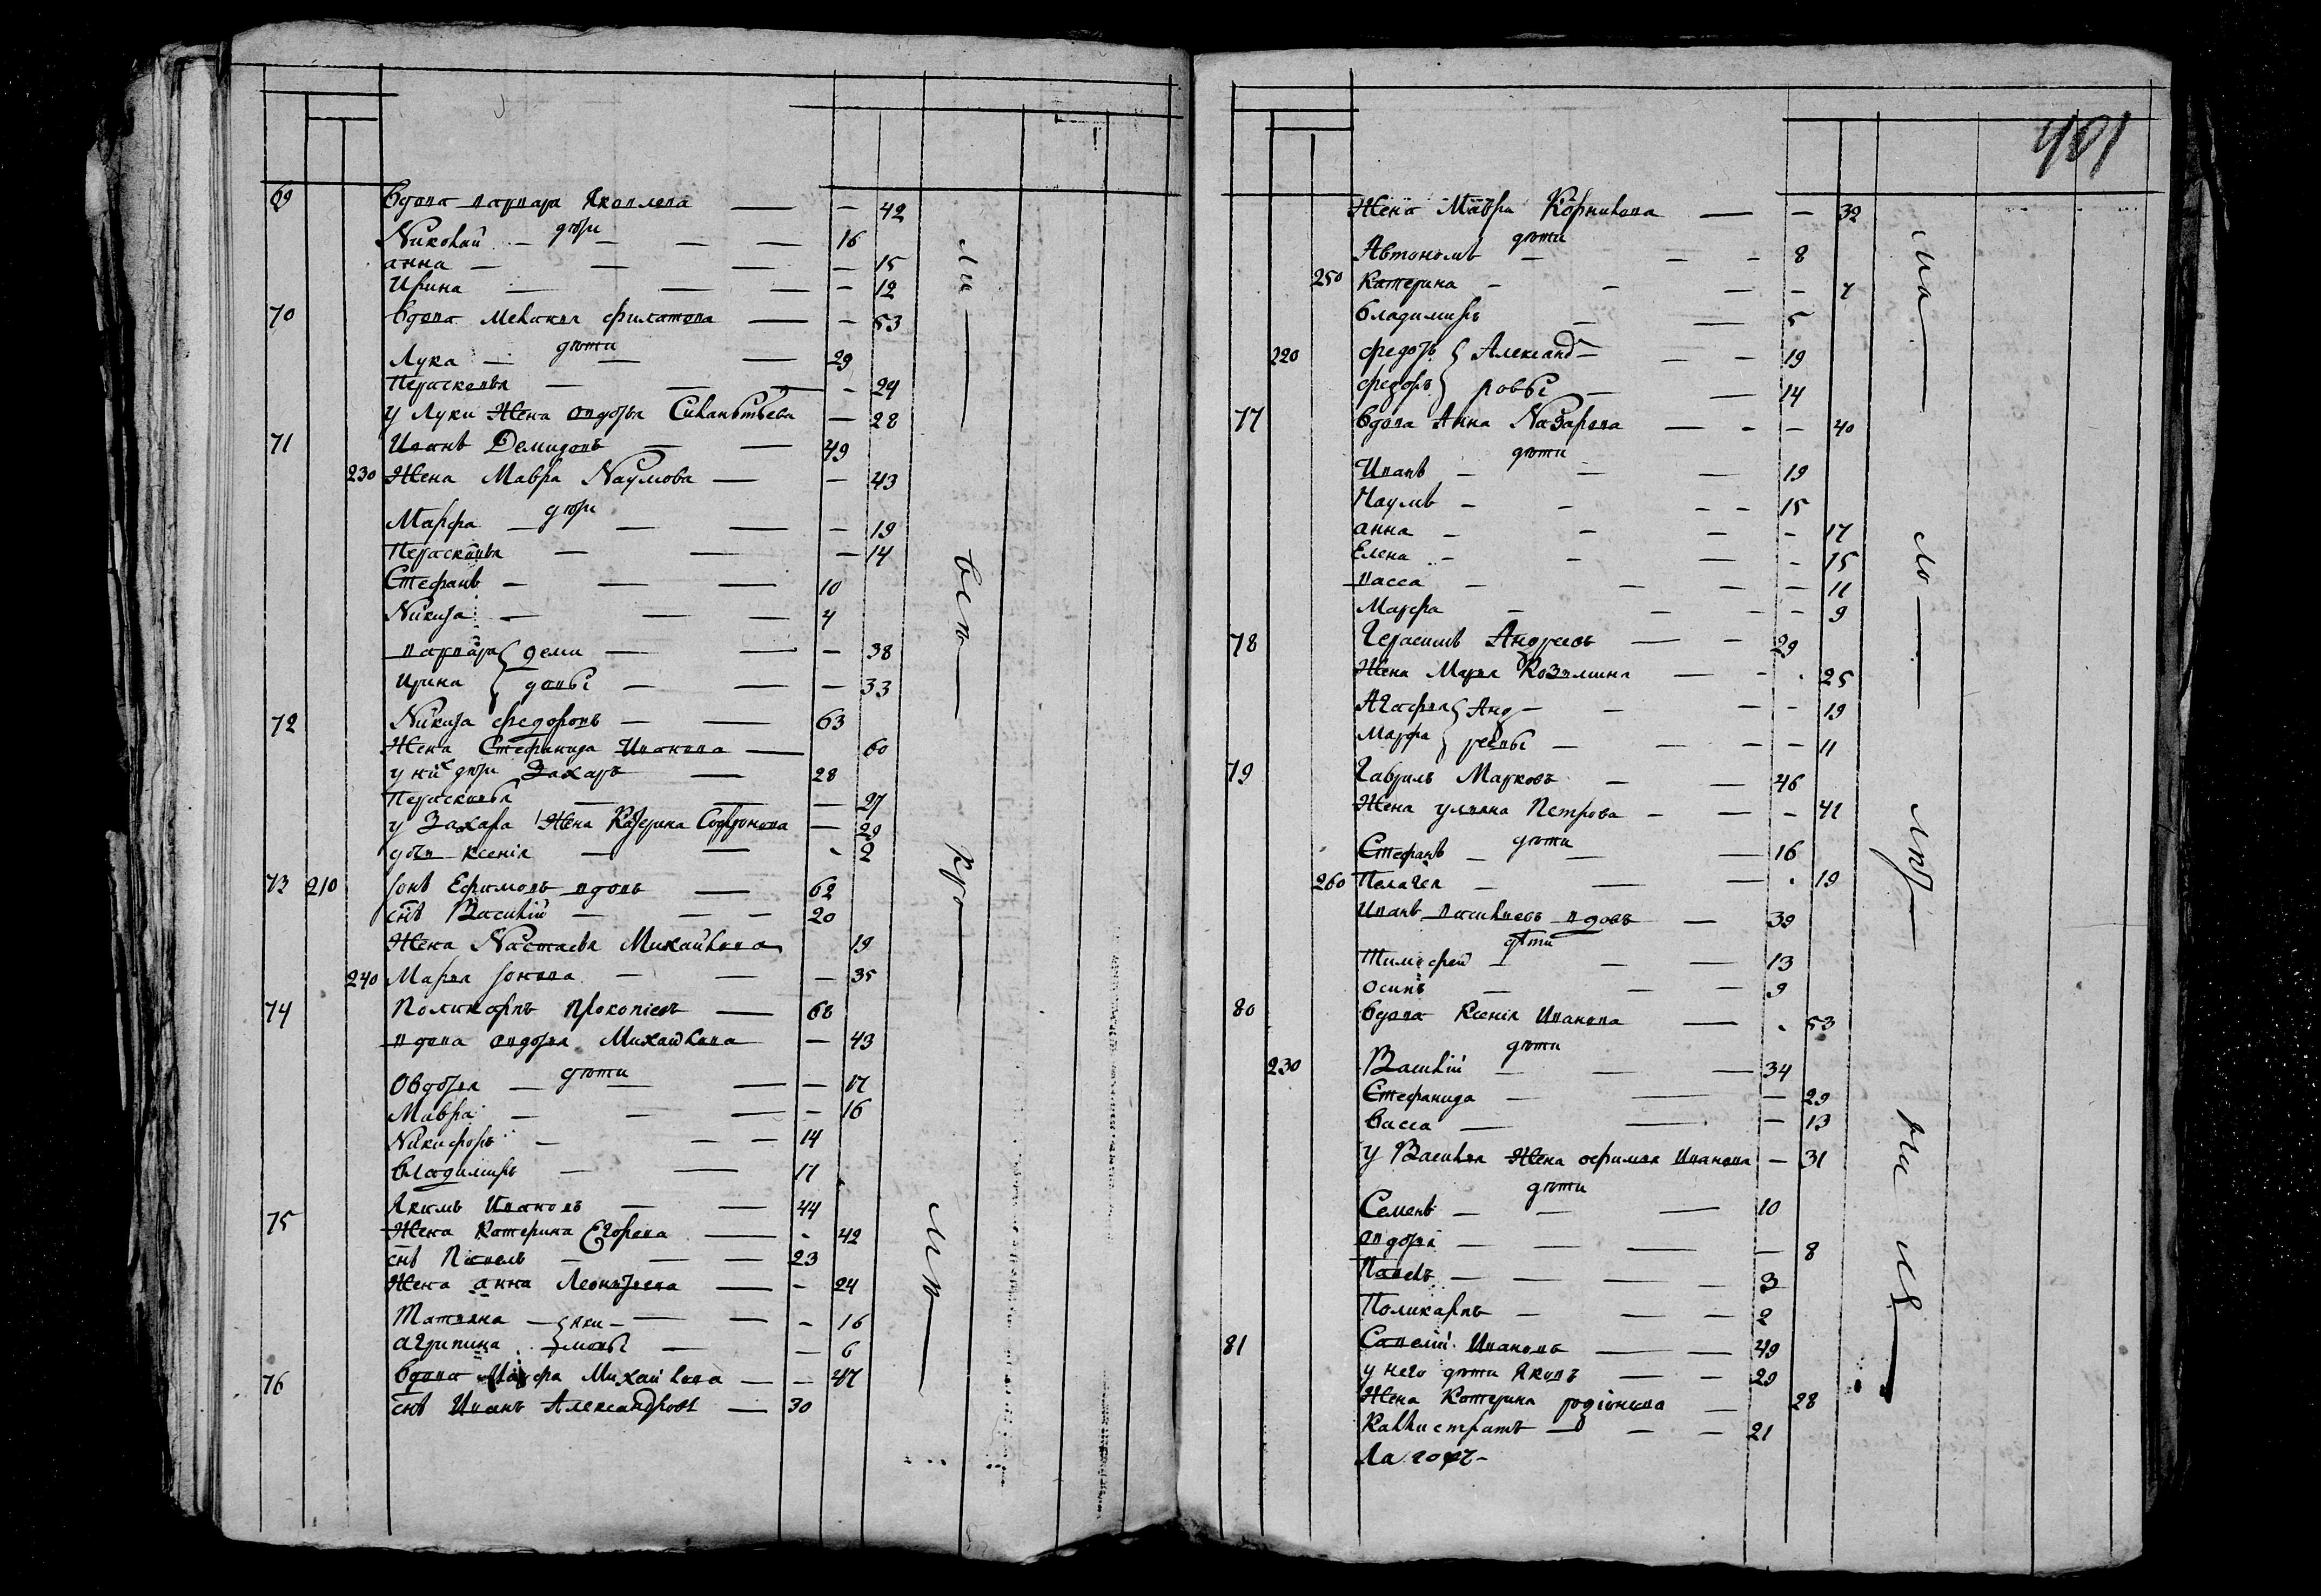 69 вдова варвара Яковлева — — 42
дѣти
Николай — 16
анна — — 15
Ирина — — 12
70 вдова Меланья филатова — — 53
дѣти
Лука — 29
Парасковья — — 24
у Луки Жена овдотья Силантьева — 28
71 Иванъ Демидовъ — 49
230 Жена Мавра Наумова — — 43
дѣти
Марфа — — 19
Парасковья — — 14
Стефанъ — 10
Никита — 4
варвара } деми — — 38
Ирина } довы — — 33
72 Никита федоровъ — 63
Жена Стефанида Иванова — 60
у них дѣти Захаръ — 28
Парасковья — — 27
у Захара Жена Катерина Софронова — 29
дочь ксенія — - 2
73 210 Іонъ Ефимовъ вдовъ — 62
сн҃ъ Василій — 20
Жена Настасья Михайлова 19
240 Марья Іонова — — 35
74 Поликарпъ Прокопіевъ — 68
вдова овдотья Михайлова — 43
дѣти
Овдотья — — 17
Мавра — — 16
Никифоръ — 14
владимиръ — 11
75 Якимъ Ивановъ — 44
Жена Катерина Егорова — - 42
сн҃ъ Павелъ — 23
Жена анна Леонтьева — - 24
Татьяна — } яки — - 16
агрипина } мовы — — 6
76 вдова Марфа Михайлова — — 47
сн҃ъ Иванъ Александровъ — 30
ли — всѣ — кро — мѣ —
401
Жена Мавра Корнилова — — 32
дѣти
Автономъ — 8
250 Катерина — - 7
владимиръ — 5
220 федотъ } Александ — 19
федоръ } ровы — 14
77 вдова Анна Назарова — - 40
дѣти
Иванъ — 19
Наумъ — 15
анна — - 17
Елена — - 15
васса — — 11
Марфа — - 9
78 Герасимъ Андреевъ — 29
Жена Марья Козьмина — . 25
Агафья } Анд — - 19
Марфа } реевы — - 11
79 Гаврилъ Марковъ — 46
Жена ульяна Петрова — - 41
дѣти
Стефанъ — 16
260 Пелагея — . 19
Иванъ васильевъ вдовъ — 39
дѣти
Тимофей — 13
осипъ — 9
80 вдова Ксенія Иванова — . 53
дѣти
230 Василій — 34
Стефанида — — 29
васса — — 13
у Василья Жена офимья Иванова — 31
дѣти
Семенъ — 10
овдотья — — 8
Павелъ — 3
Поликарпъ — 2
81 Савелій Ивановъ — 49
у него дѣти Яковъ — 29
Жена Катерина родіонова — 28
Каллистратъ — 21